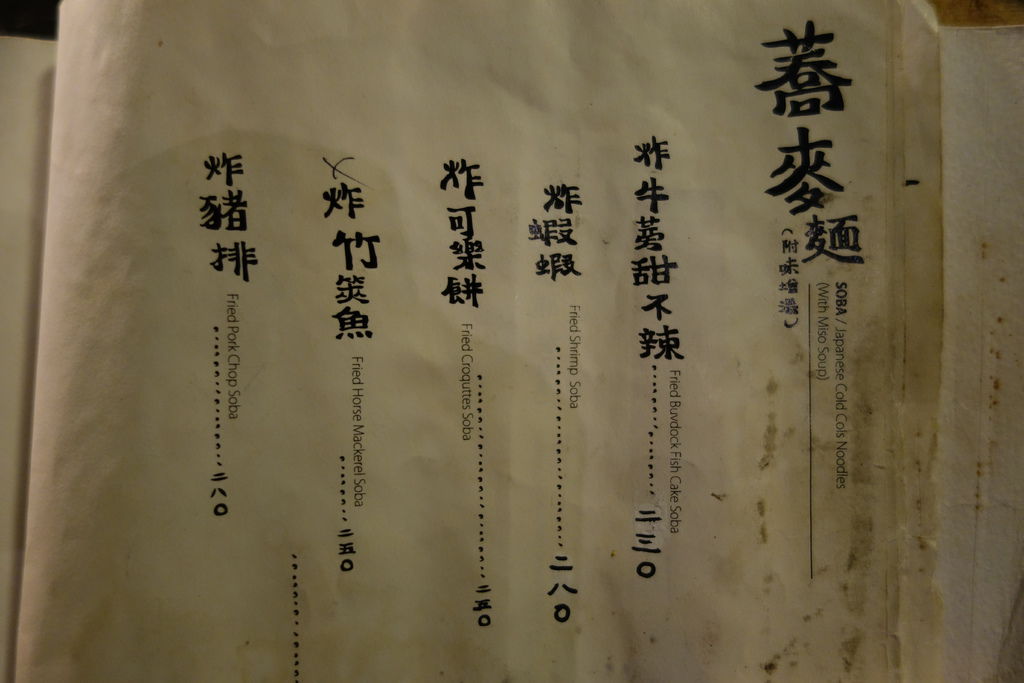 蕎麥麵
(附味增湯)
SOBA / Japanese Cold Cols Noodles
(With Miso Soup)
炸牛蒡甜不辣
Fried Buvdock Fish Cake Soba
二三〇
炸蝦蝦
Fried Shrimp Soba
二八〇
炸可樂餅
Fried Croquttes Soba
二五〇
炸竹筴魚
Fried Horse Mackerel Soba
二五〇
炸豬排
Fried Pork Chop Soba
二八〇